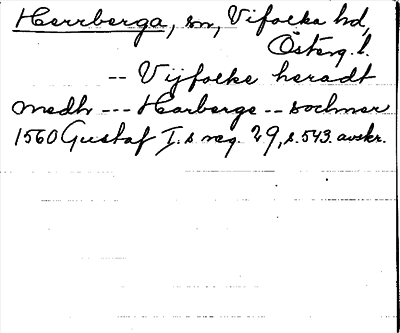 Herrberga, sn, Vifolka hd,
Österg. l.
-- Vijfolke heradt
medh --- Harberge -- sochner
1560 Gustaf I.s reg. 29, s. 543. avskr.